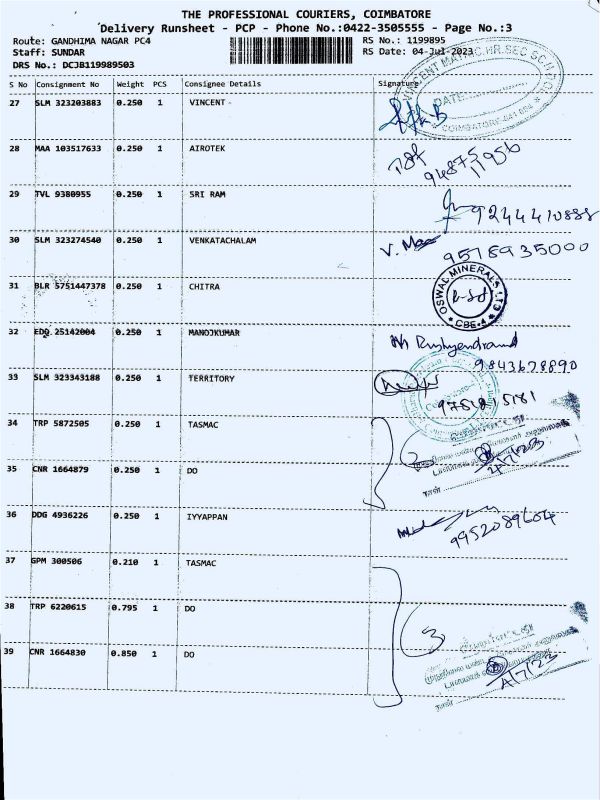 THE PROFESSIONAL COURIERS, COIMBATORE
Delivery Runsheet - PCP - Phone No.:0422-3505555 - Page No.:3
Route: GANDHIMA NAGAR PC4 RS No.: 1199895
Staff: SUNDAR RS Date: 04-Jul-2023
DRS No.: DCJB119989503
S No Consignment No Weight PCS Consignee Details Signature
27 SLM 323203883 0.250 1 VINCENT
DATE:
COIMBATORE-641 004
28 MAA 103517633 0.250 1 AIROTEK
29 TVL 9380955 0.250 1 SRI RAM
9244410888
30 SLM 323274540 0.250 1 VENKATACHALAM
31 BLR 5751447378 0.250 1 CHITRA
OSWAL MINERALS LTD
CBE-4
32 EDQ 25142004 0.250 1 MANOJKUMAR
9843678890
33 SLM 323343188 0.250 1 TERRITORY
34 TRP 5872505 0.250 1 TASMAC
35 CNR 1664879 0.250 1 DO
நாள்
36 DDG 4936226 0.250 1 IYYAPPAN
9952089604
37 GPM 300506 0.210 1 TASMAC
38 TRP 6220615 0.795 1 DO
3
39 CNR 1664830 0.850 1 DO
4/7/23
நாள்